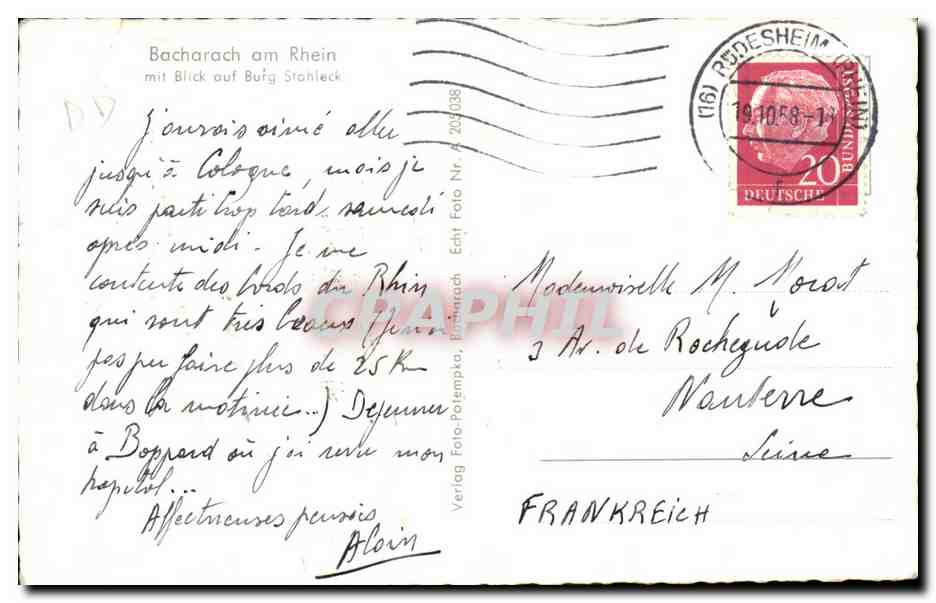 Bacharach am Rhein
mit Blick auf Burg Stahleck
DD
J'aurais aimé aller
jusqu'à Cologne, mais je
suis parti trop tard, samedi
après midi - Je me
contente des bords du Rhin
qui sont très beaux (Je n'ai
pas pu faire plus de 25 Km
dans la matinée...) Déjeuner
à Boppard où j'ai revu mon
hopital...
Affectueuses pensées
Alain
Verlag Foto-Potempka, Bacharach Echt Foto Nr. A 205038
(16) RÜDESHEIM (RHEIN)
19.10.58-1
20
DEUTSCHE
BUNDESPOST
Mademoiselle M. Morat
3 Av. de Rochegude
Nanterre
Seine
FRANKREICH
CPAPHIL